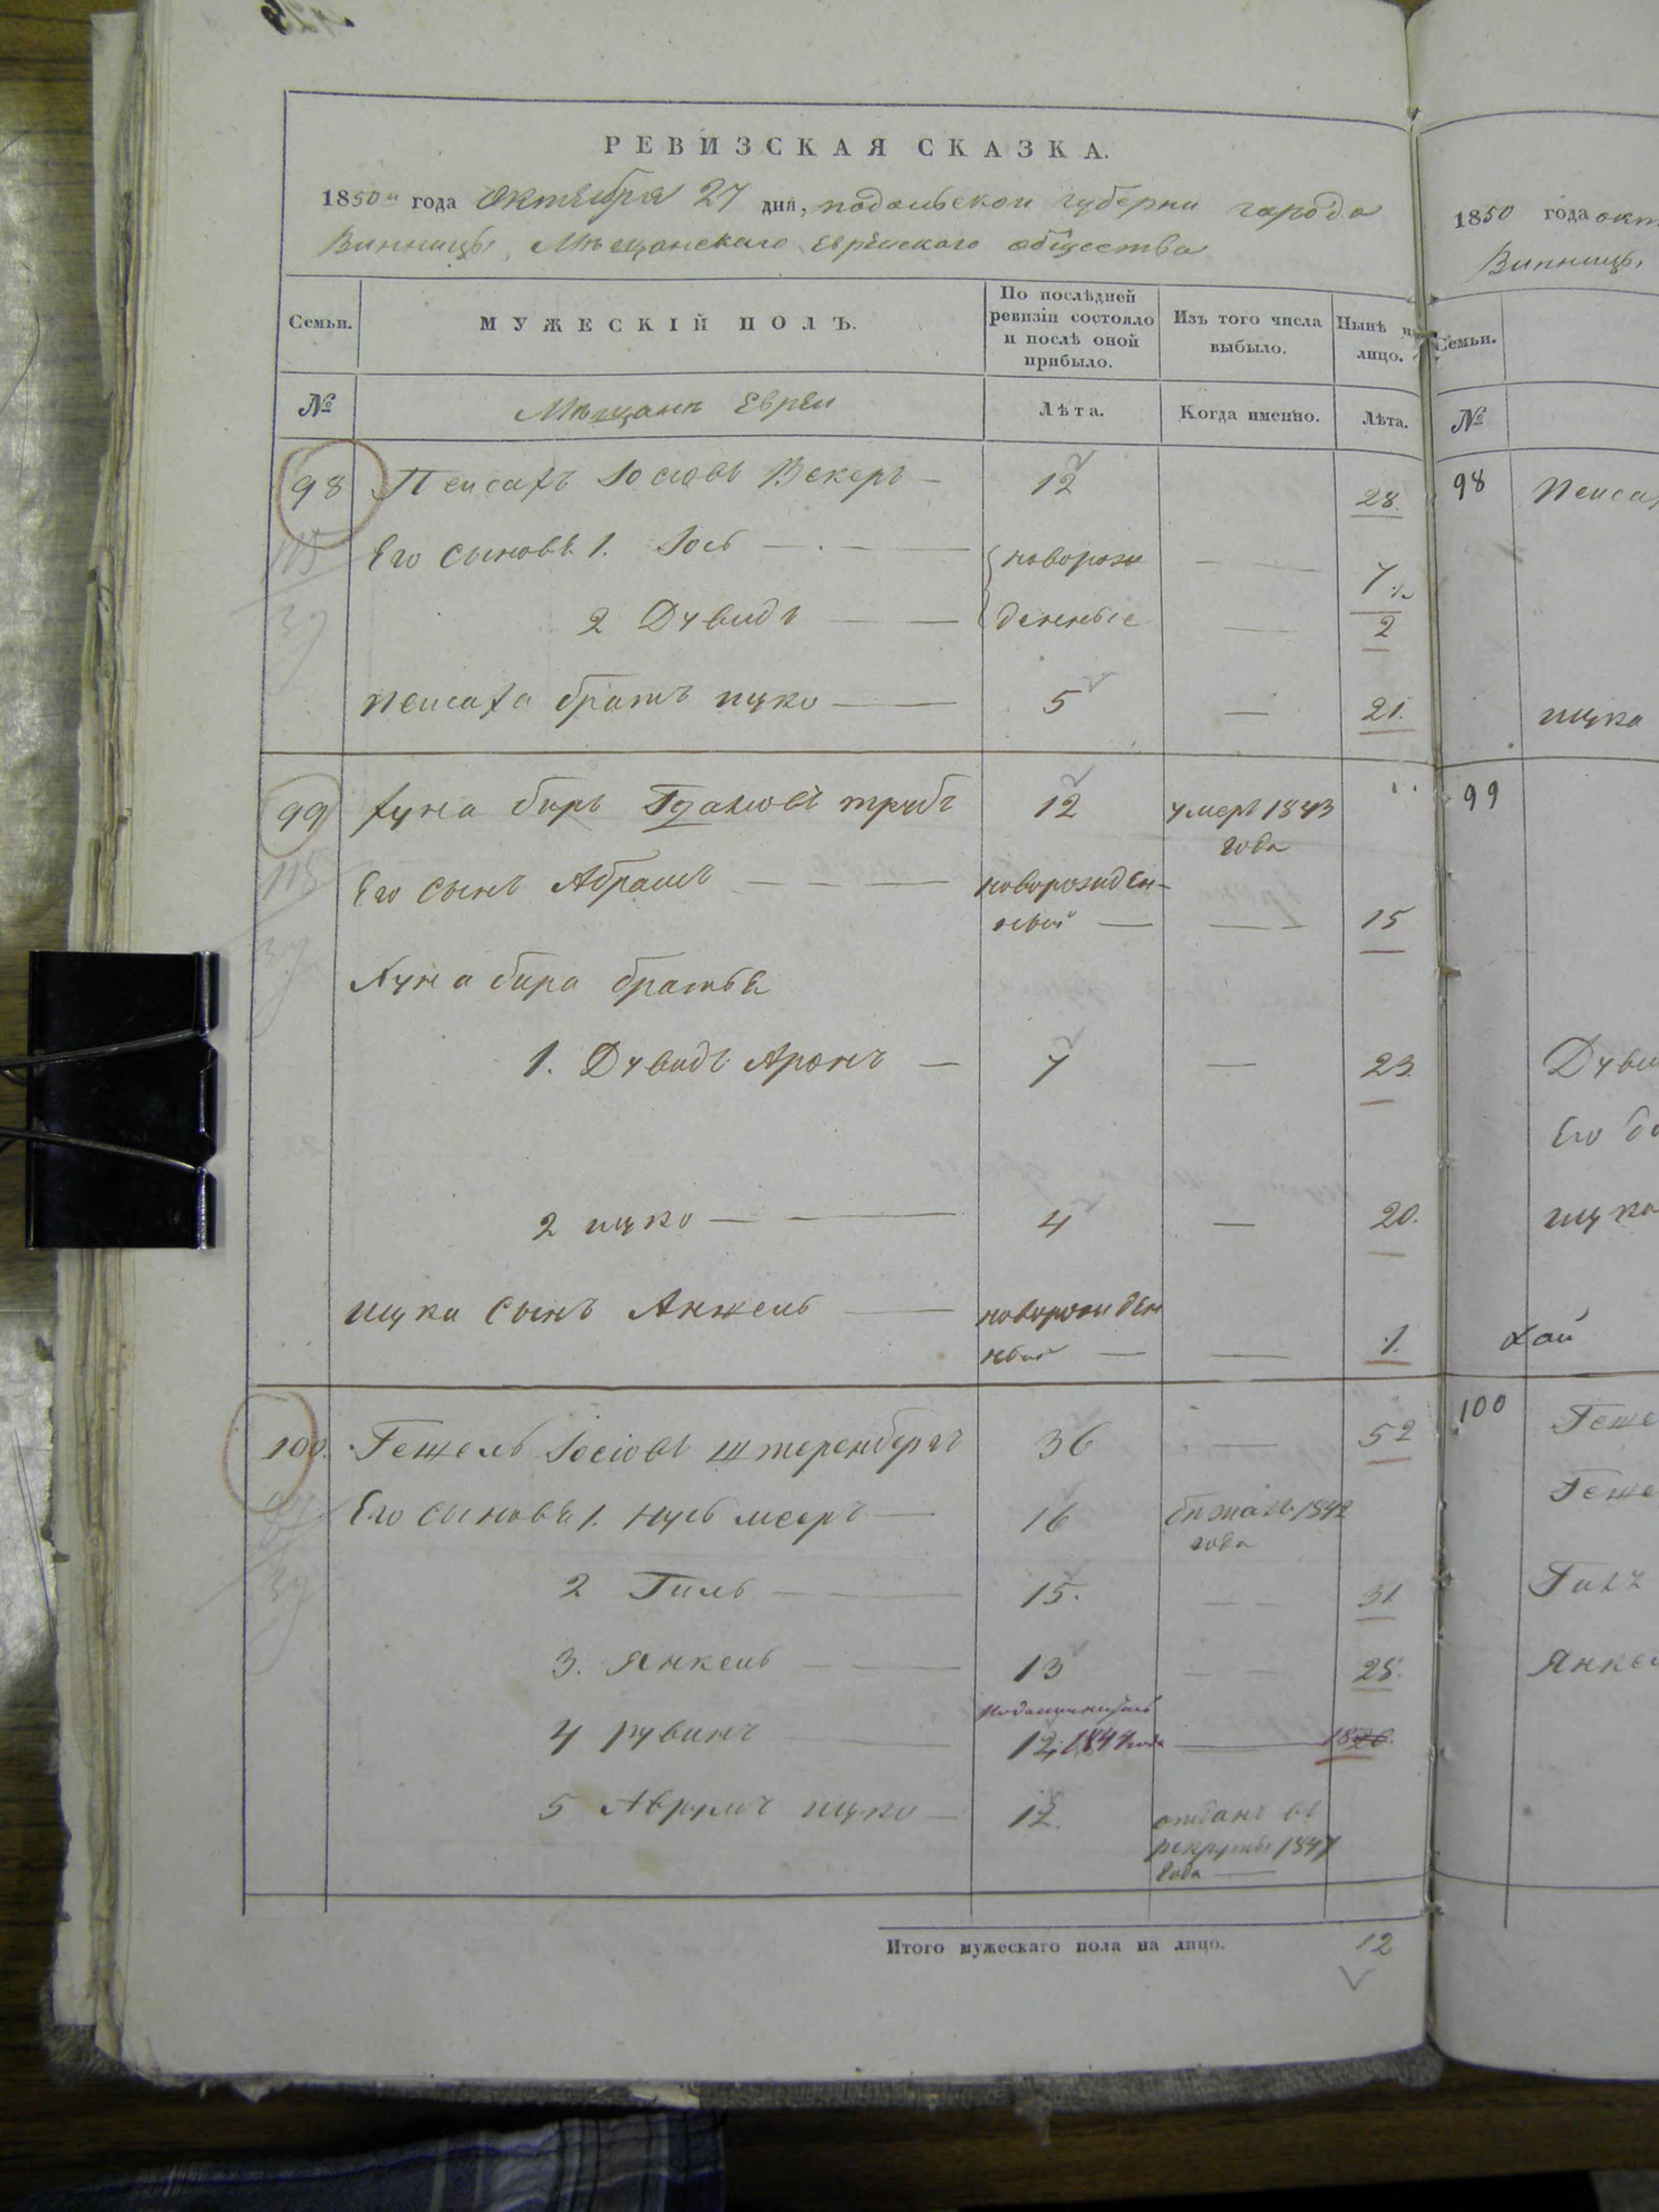 РЕВИЗСКАЯ СКАЗКА.
1850 года Октября 27 дня, подольской губерни города
Винницы, Мѣщанскаго Еврейскаго общества
Семьи.
МУЖЕСКІЙ ПОЛЪ.
По послѣдней
ревизіи состояло
и послѣ оной
прибыло.
Изъ того числа
выбыло.
Нынѣ на
лицо.
№
Мѣщанъ Евреи
Лѣта.
Когда именно.
Лѣта.
98 Пейсахъ Іосіовъ Векеръ — 12 28.
Его сыновѣ 1. Іось — новорож 7
2 Дувидъ — денные — 2
Пейсаха братъ ицко — 5 — 21.
99 хуна биръ трубъ 12 умеръ 1843
года
Его сынъ Абрамъ — новорожден-
ный — — 15
Хуна бира братья
1. Дувидъ Аронъ — 7 — 23.
2 ицко — 4 — 20.
ицки сынъ Анжель — новорожден
ный — — 1.
100. Гешель Іосіовъ штеренбергъ 36 — 52
Его сыновѣ 1. Нусь мееръ — 16 бѣжалъ 1842
года
2 Гиль — 15. — 31.
3. Янкель — 13 — 28.
4 рувинъ — 12
5 Аврумъ ицко — 12. отданъ въ
рекруты 1847
года —
Итого мужескаго пола на лицо. 12
1850 года окт
Винницы,
Семьи.
№
98 Пейса
ицка
99
Дуви
Его
ицка
Хай
100 Геше
Геше
Янке